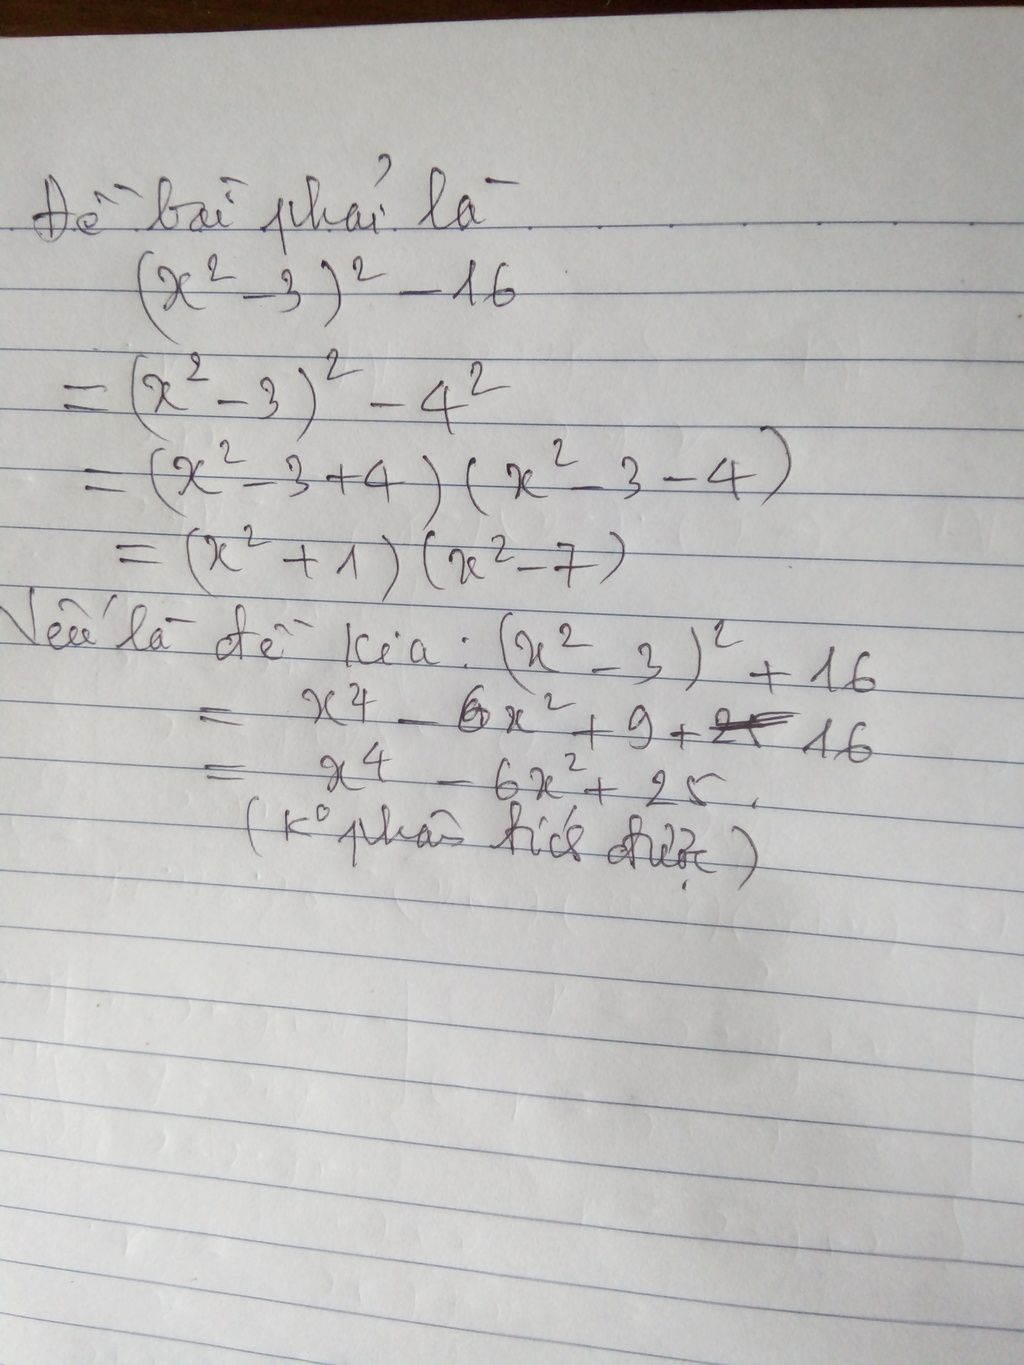 Đề bài phải là
(x² - 3)² - 16
= (x² - 3)² - 4²
= (x² - 3 + 4) (x² - 3 - 4)
= (x² + 1) (x² - 7)
Nếu là đề kia : (x² - 3)² + 16
= x⁴ - 6x² + 9 + 16
= x⁴ - 6x² + 25.
(K⁰ phân tích được)